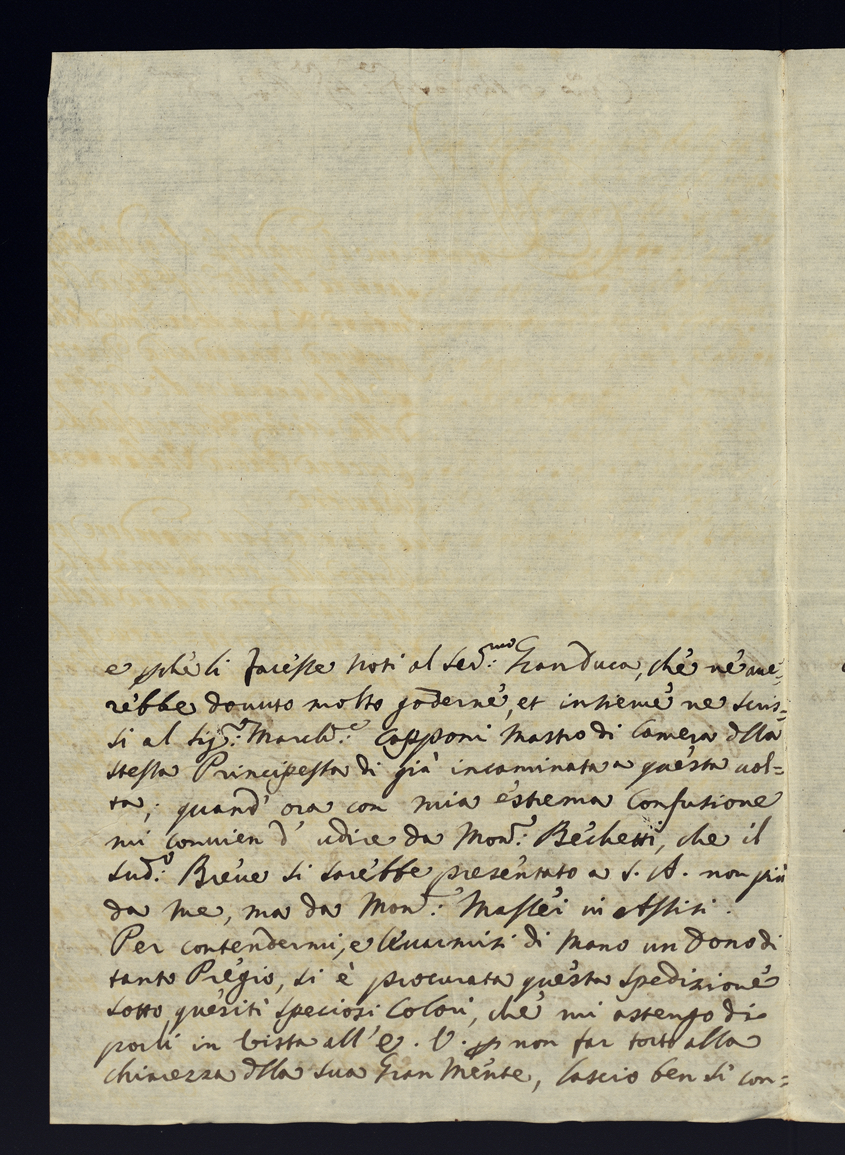 e p̱chè li facesse noti al Ser:mo Gran Duca, chè nè ave=
rèbbe douuto molto goderne, et insieme ne scris=
si al Sig:r March:e Capponi Mastro di Camera dlla
stessa Principessa di già incaminata a questa uol=
ta; quand' ora con mia estrema Confusione
mi conuien d' udire da Mon:r Bechetti, che il
Sud:o Breue si sarèbbe presentato a S. A. non più
da me, ma da Mon:r Maffei in Assisi.
Per contendermi, e leuarmisi di Mano un Dono di
tanto Prègio, si è procurata questa Spedizione
sotto quesiti speciosi Colori, chè mi astengo di
porli in Vista all' E. V. p̱ non far torto alla
chiarezza dlla sua Gran Mente, lascio ben si con=